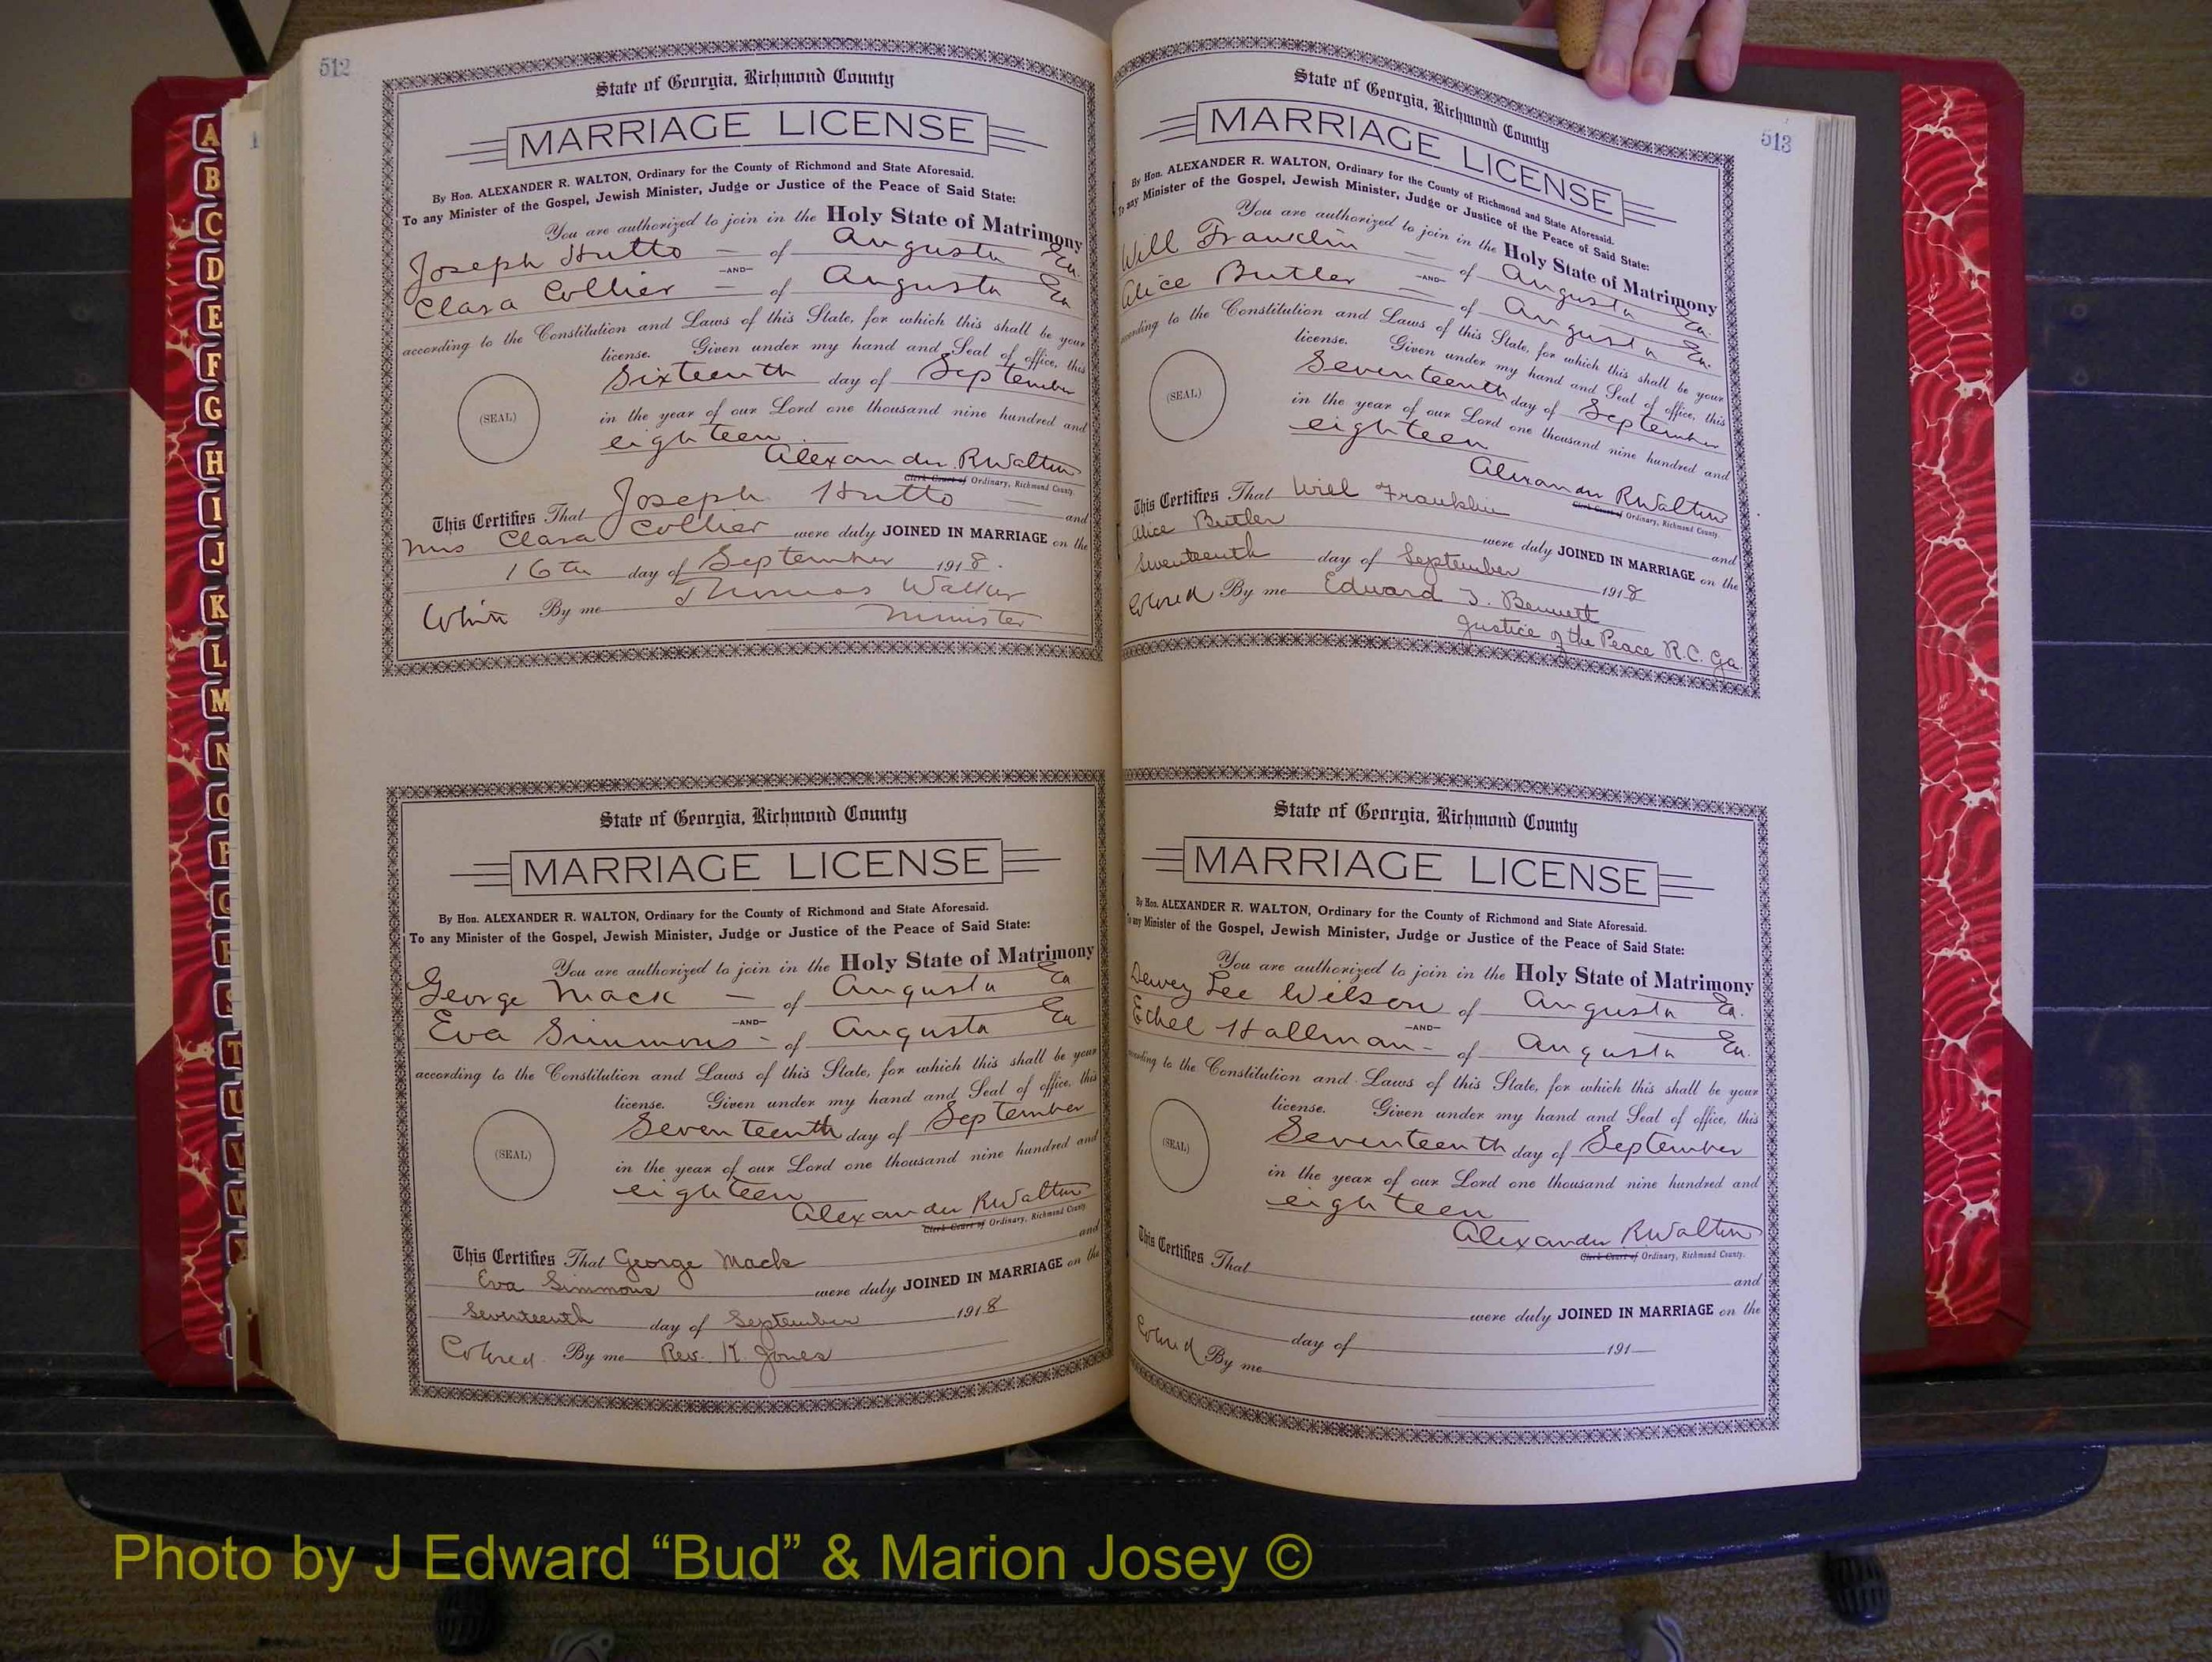 512
State of Georgia, Richmond County
MARRIAGE LICENSE
By Hon. ALEXANDER R. WALTON, Ordinary for the County of Richmond and State Aforesaid.
To any Minister of the Gospel, Jewish Minister, Judge or Justice of the Peace of Said State:
You are authorized to join in the Holy State of Matrimony
Joseph Hutto — of Augusta Ga.
—AND—
Clara Collier — of Augusta Ga
according to the Constitution and Laws of this State, for which this shall be your
license. Given under my hand and Seal of office, this
Sixteenth day of September
(SEAL)
in the year of our Lord one thousand nine hundred and
eighteen
Alexander R Walton
Clerk Court of Ordinary, Richmond County.
This Certifies That Joseph Hutto and
Mrs Clara Collier were duly JOINED IN MARRIAGE on the
16th day of September 1918.
White By me Thomas Walker
Minister
State of Georgia, Richmond County
MARRIAGE LICENSE
By Hon. ALEXANDER R. WALTON, Ordinary for the County of Richmond and State Aforesaid.
To any Minister of the Gospel, Jewish Minister, Judge or Justice of the Peace of Said State:
You are authorized to join in the Holy State of Matrimony
George Mack — of Augusta Ga
—AND—
Eva Simmons - of Augusta Ga
according to the Constitution and Laws of this State, for which this shall be your
license. Given under my hand and Seal of office, this
Seventeenth day of September
(SEAL)
in the year of our Lord one thousand nine hundred and
eighteen
Alexander R Walton
Clerk Court of Ordinary, Richmond County.
This Certifies That George Mack and
Eva Simmons were duly JOINED IN MARRIAGE on the
Seventeenth day of September 1918
Colored By me Rev. K. Jones
513
State of Georgia, Richmond County
MARRIAGE LICENSE
By Hon. ALEXANDER R. WALTON, Ordinary for the County of Richmond and State Aforesaid.
To any Minister of the Gospel, Jewish Minister, Judge or Justice of the Peace of Said State:
You are authorized to join in the Holy State of Matrimony
Will Franklin — of Augusta Ga.
—AND—
Alice Butler — of Augusta Ga.
according to the Constitution and Laws of this State, for which this shall be your
license. Given under my hand and Seal of office, this
Seventeenth day of September
(SEAL)
in the year of our Lord one thousand nine hundred and
eighteen
Alexander R Walton
Clerk Court of Ordinary, Richmond County.
This Certifies That Will Franklin and
Alice Butler were duly JOINED IN MARRIAGE on the
Seventeenth day of September 1918
Colored By me Edward J. Bennett
Justice of the Peace R.C. Ga.
State of Georgia, Richmond County
MARRIAGE LICENSE
By Hon. ALEXANDER R. WALTON, Ordinary for the County of Richmond and State Aforesaid.
To any Minister of the Gospel, Jewish Minister, Judge or Justice of the Peace of Said State:
You are authorized to join in the Holy State of Matrimony
Dewey Lee Wilson of Augusta Ga.
—AND—
Ethel Hallman - of Augusta Ga.
according to the Constitution and Laws of this State, for which this shall be your
license. Given under my hand and Seal of office, this
Seventeenth day of September
(SEAL)
in the year of our Lord one thousand nine hundred and
eighteen
Alexander R. Walton
Clerk Court of Ordinary, Richmond County.
This Certifies That
and
were duly JOINED IN MARRIAGE on the
day of 191
Colored By me
A
B
C
D
E
F
G
H
I
J
K
L
M
N
O
P
Q
R
S
T
U
V
W
Photo by J Edward “Bud” & Marion Josey ©